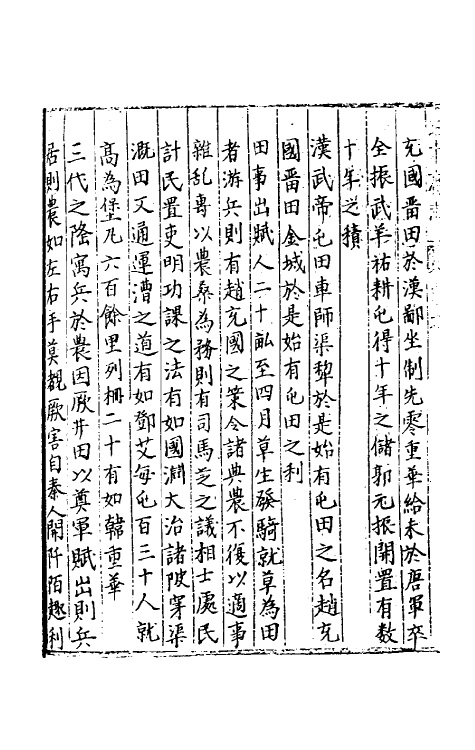 充國畱田於漢鄙坐制先零重華給耒於唐軍卒
全振武羊祜耕屯得十年之儲郭元振開置有数
十年之積
漢武帝屯田車師渠犂於是始有屯田之名趙充
國畱田金城於是始有屯田之利
田事出賦人二十畝至四月草生發騎就草為田
者游兵則有趙充國之策令諸典農不復以適事
雜乱專以農桑為務則有司馬芝之議相士處民
計民置吏明功課之法有如國淵大治諸陂穿渠
溉田又通運漕之道有如鄧艾每屯百三十人就
高為堡凡六百餘里列柵二十有如韓重華
三代之隆寓兵於農因厥井田以奠軍賦出則兵
居則農如左右手莫覩厥害自秦人開阡陌趣利